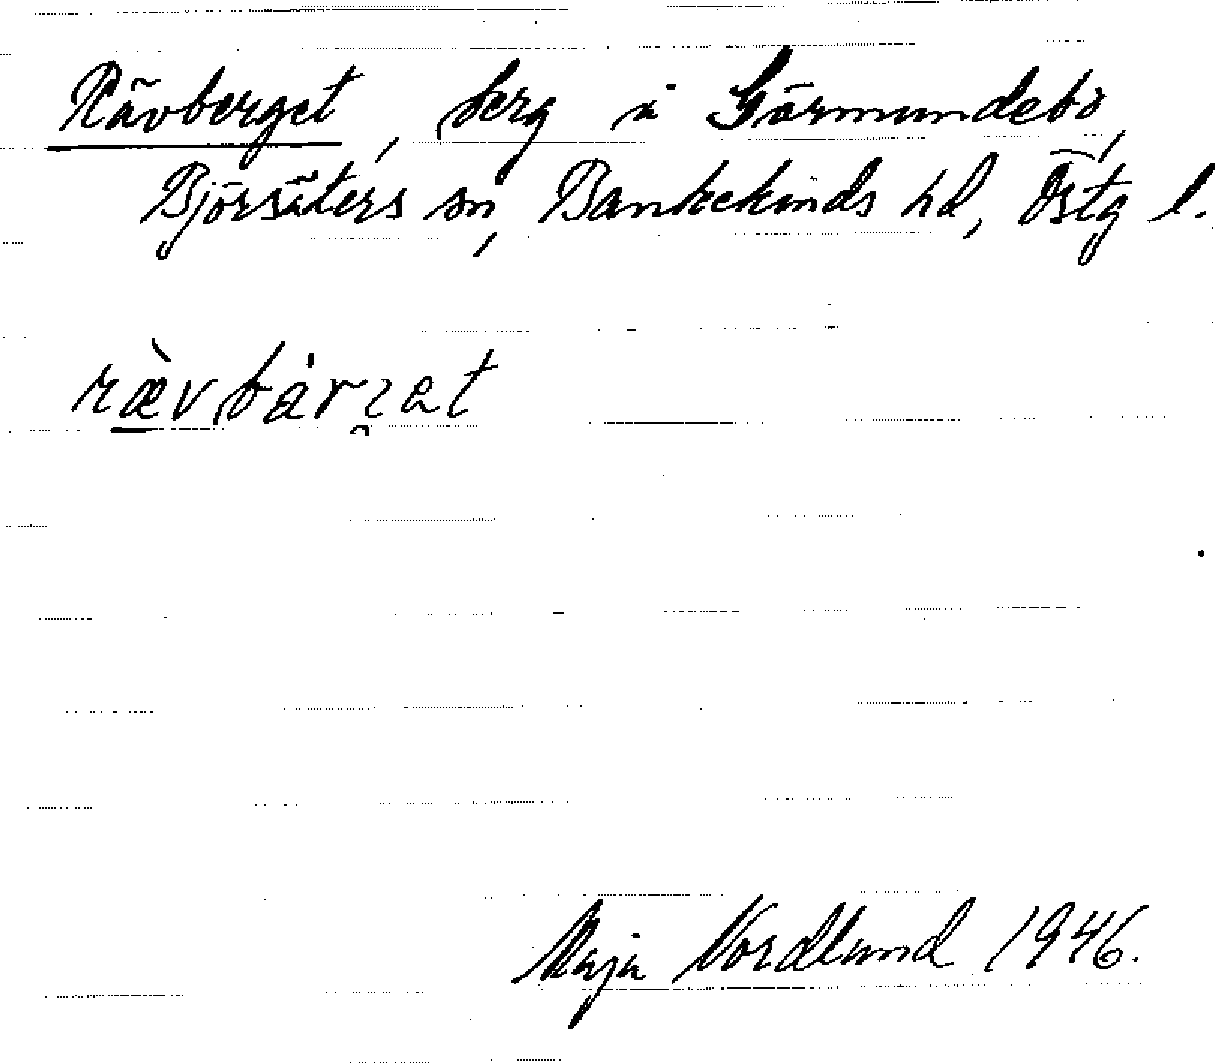 Rävberget, berg i Görmundebo,
Björsäters sn, Bankekinds hd, Östg l.
Maja Nordlund 1946.